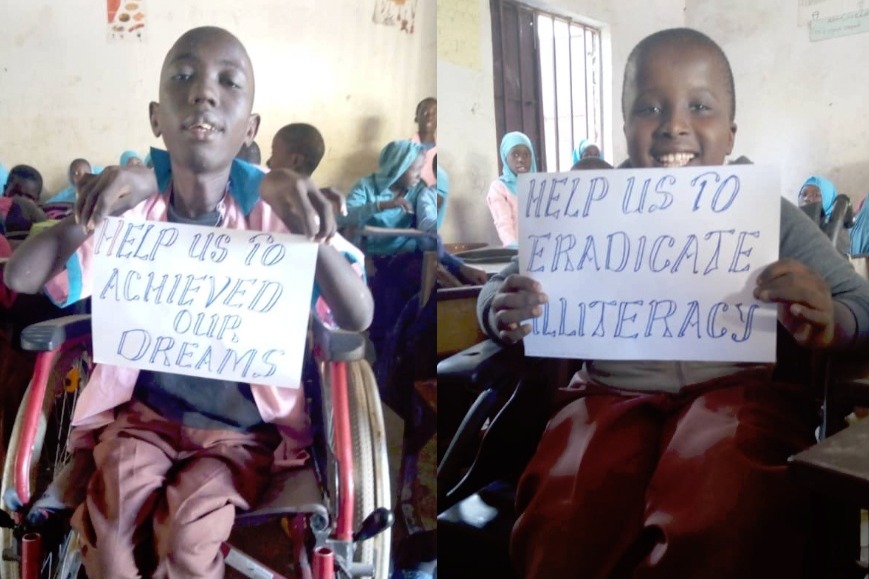 HELP US TO
ACHIEVED
OUR
DREAMS
HELP US TO
ERADICATE
ILLITERACY